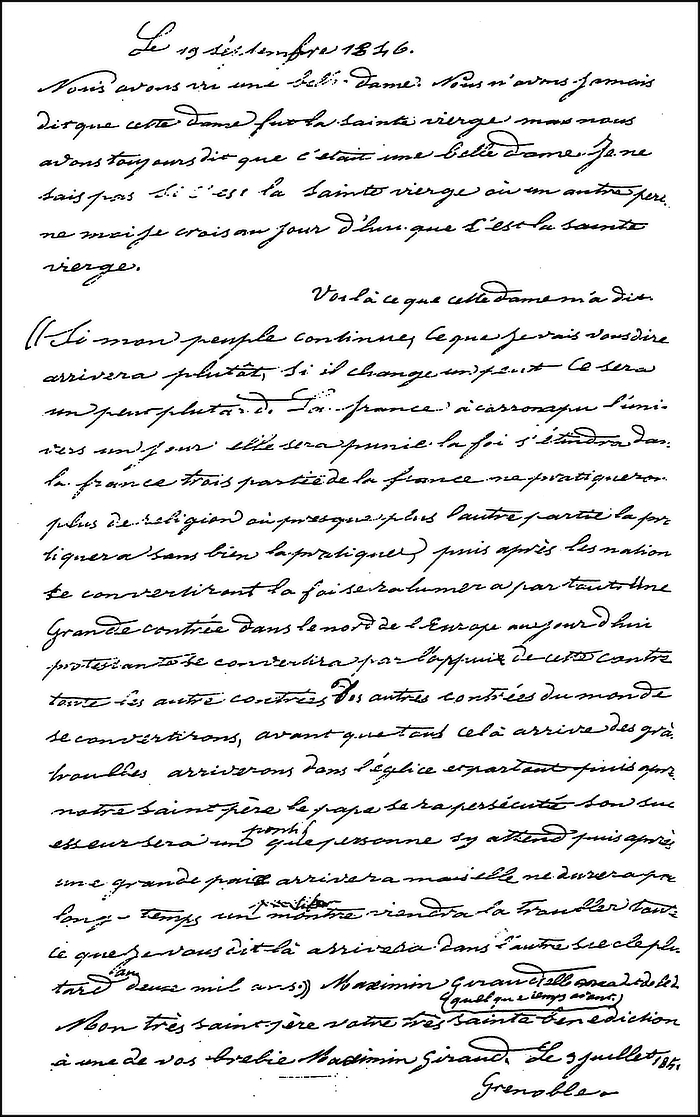 Le 19 séptembre 1846.
Nous avons vu une belle dame. Nous n'avons jamais
dit que cette dame fut la sainte vierge mas nous
avons toujours dit que c'était une belle dame. Je ne
sais pas si c'est la sainte vierge ou un autre pers.
ne mai je crois au jour d'hui que c'est la sainte
vierge.
Voilà ce que cette dame m'a dit.
((Si mon peuple continue, ce que je vais vous dire
arrivera plutôt, si il change un peu ce sera
un peu plutard. La france à corrompu l'uni-
vers un jour elle sera punie. la foi s'étindra dan.
la france trois partie de la france ne pratiqueron
plus de religion ou presque plus l'autre partie la pra
tiquera sans bien la pratiquer, puis après les nation
se convertiront la foi se ralumera partout. Une
Grande contrée dans le nord de l'Europe aujour dhui
protestante se convertira par l'appuie de cette contré
toute les autre contrées des autres contrées du monde
se convertirons, avant que tous celà arrive des grà.
troubles arriverons dans l'église et partout puis apré
notre saint père le pape sera persécuté son suc
esseur sera un pontif que personne sy attend puis après
une grande paix arrivera mais elle ne durera pa
long-temps un montre viendra la troubler tout
ce que je vous dit là arrivera dans l'autre siecle plu
tard au deux mil ans.)) Maximin Giraud elle
(quelque temps avant)
Mon très saint père votre très sainte bénédiction
à une de vos brebie Maximin Giraud. Le 3 juillet 1851
Grenoble.